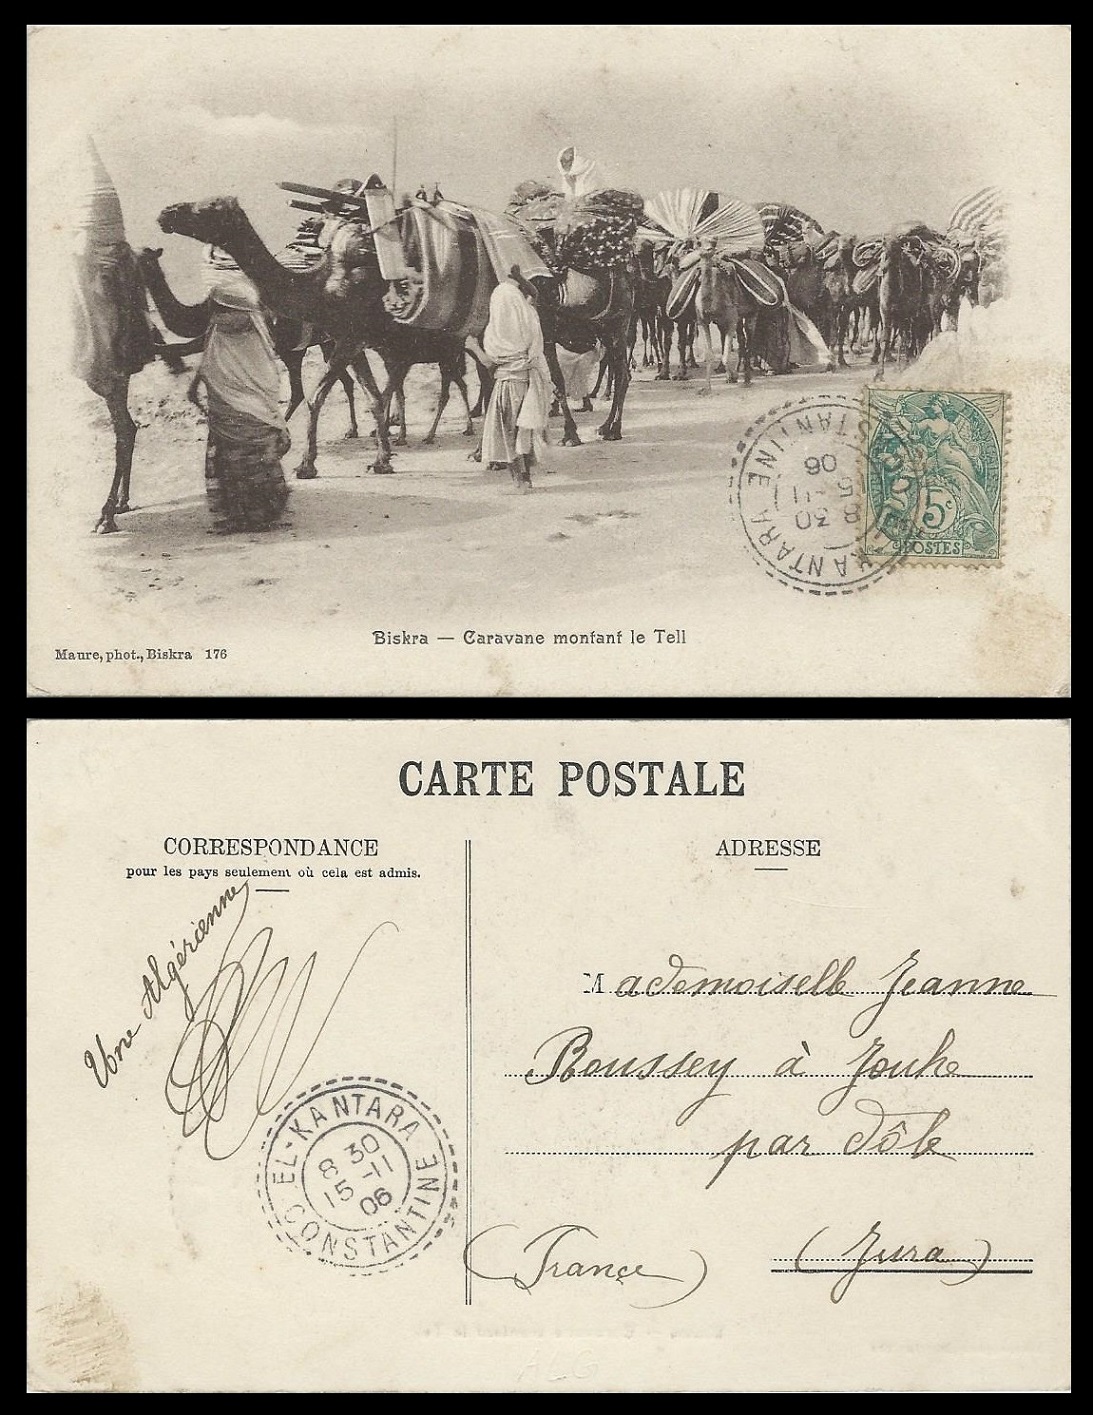 Biskra — Caravane montant le Tell
Maure, phot., Biskra 176
KANTARA
CONSTANTINE
8 30
15 -11
06
5c
POSTES
CARTE POSTALE
CORRESPONDANCE
pour les pays seulement où cela est admis.
Une Algérienne
EL-KANTARA
8 30
15 -11
06
CONSTANTINE
ADRESSE
Mademoiselle Jeanne
Roussey à Jouhe
par Dôle
(Jura)
(France)
ALG